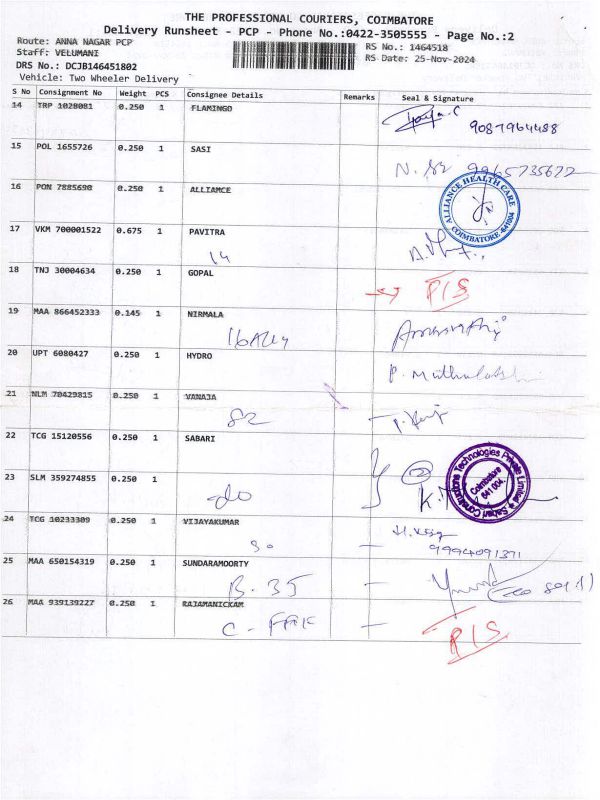 THE PROFESSIONAL COURIERS, COIMBATORE
Delivery Runsheet - PCP - Phone No.:0422-3505555 - Page No.:2
Route: ANNA NAGAR PCP
Staff: VELUMANI
DRS No.: DCJB146451802
Vehicle: Two Wheeler Delivery
RS No.: 1464518
RS Date: 25-Nov-2024
S No Consignment No Weight PCS Consignee Details Remarks Seal & Signature
14 TRP 1028081 0.250 1 FLAMINGO
9087964488
15 POL 1655726 0.250 1 SASI
9965735672
16 PON 7885690 0.250 1 ALLIANCE
ALLIANCE HEALTH CARE
COIMBATORE-641004
17 VKM 700001522 0.675 1 PAVITRA
14
18 TNJ 30004634 0.250 1 GOPAL
P/S
19 MAA 866452333 0.145 1 NIRMALA
20 UPT 6080427 0.250 1 HYDRO
P. Muthulakshmi
21 NLM 70429815 0.250 1 VANAJA
82
22 TCG 15120556 0.250 1 SABARI
Sabari Constructions Technologies Private Limited
Coimbatore
641 004.
23 SLM 359274855 0.250 1
do
24 TCG 10233309 0.250 1 VIJAYAKUMAR
9994091371
25 MAA 650154319 0.250 1 SUNDARAMOORTY
B. 35
26 MAA 939139227 0.250 1 RAJAMANICKAM
P/S